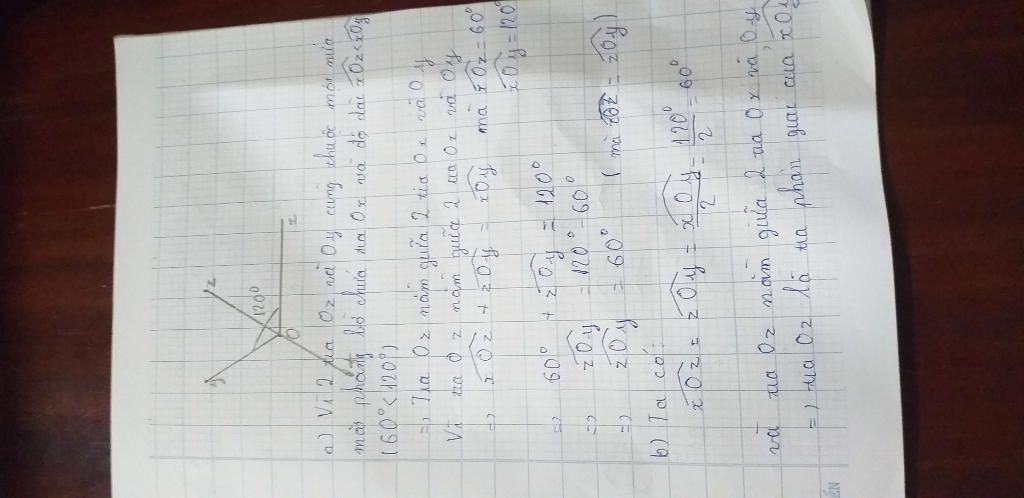 y
z
120°
O
x
t
a) Vì 2 tia Oz và Oy cùng thuộc một nửa
mặt phẳng bờ chứa tia Ox và độ dài xOz < xOy
(60° < 120°)
=> Tia Oz nằm giữa 2 tia Ox và Oy
Vì tia Oz nằm giữa 2 tia Ox và Oy
=> xOz + zOy = xOy mà xOz = 60°
xOy = 120°
=> 60° + zOy = 120°
=> zOy = 120° - 60°
=> zOy = 60° (mà xOz = zOy)
b) Ta có:
xOz = zOy = xOy/2 = 120°/2 = 60°
và tia Oz nằm giữa 2 tia Ox và Oy
=> tia Oz là tia phân giác của xOy